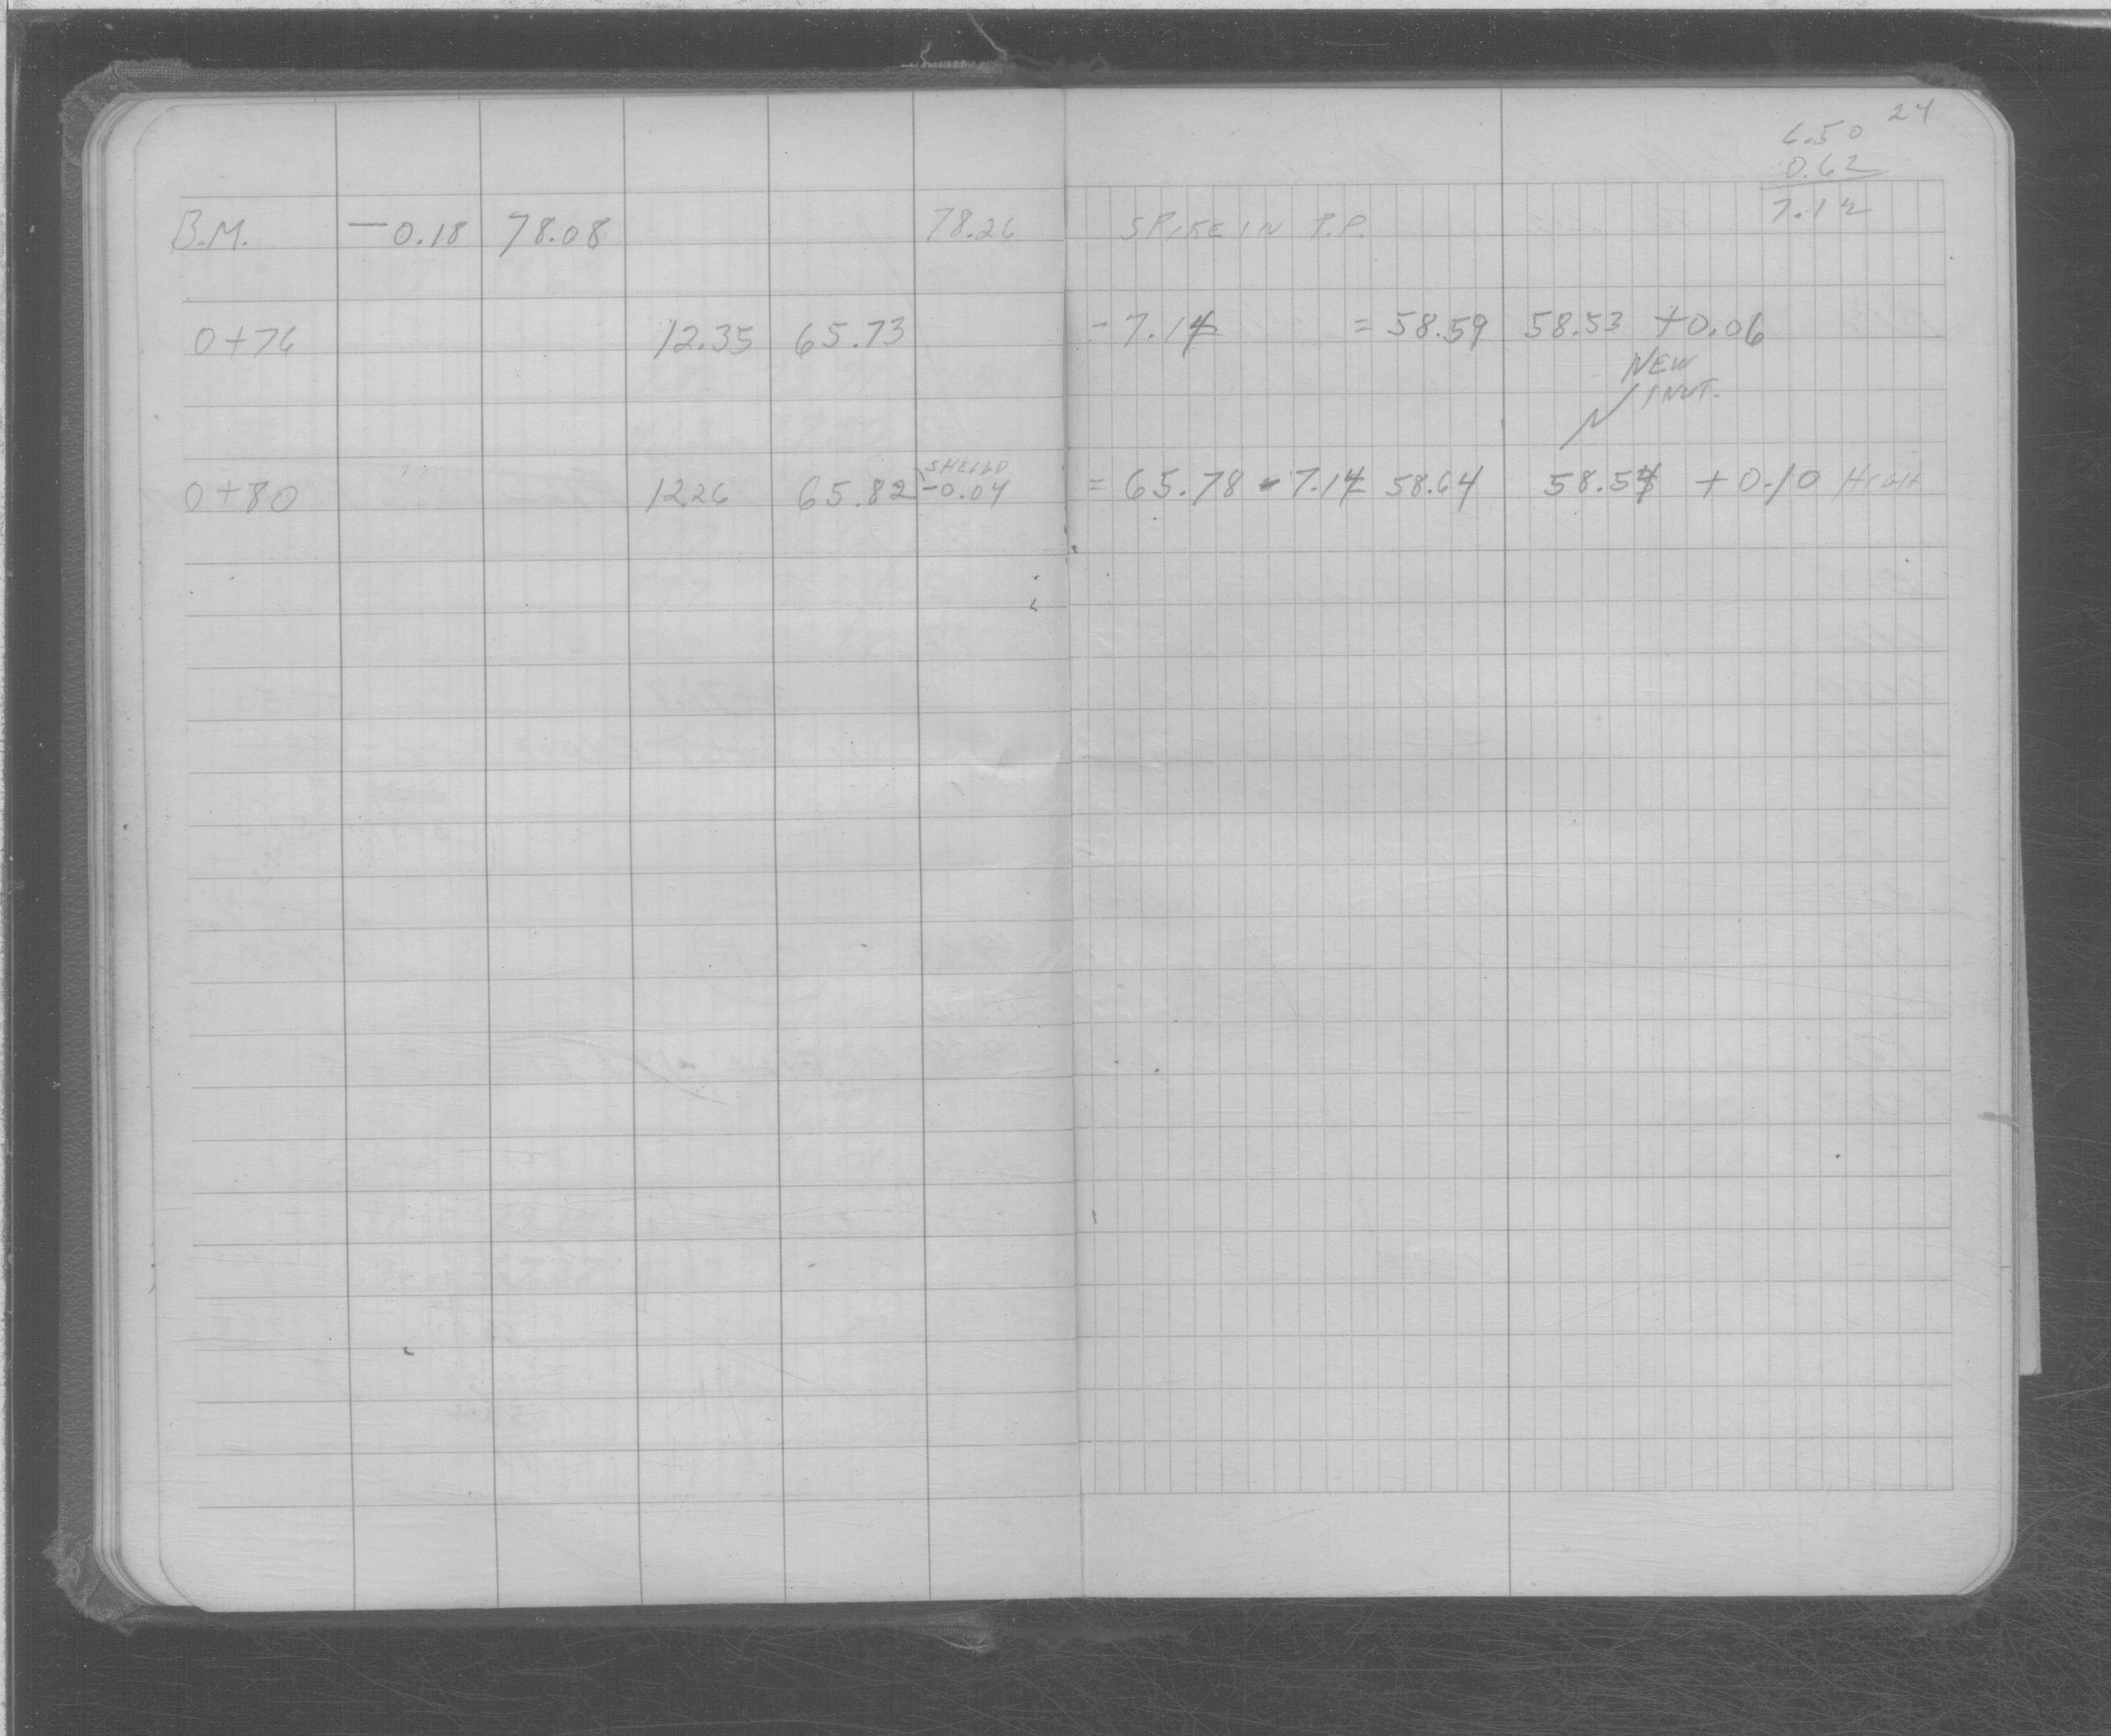 24
6.50
0.62
7.12
B.M. -0.18 78.08 78.26 SPIKE IN P.P.
0+76 12.35 65.73 -7.14 = 58.59 58.53 +0.06
NEW
INVT.
SHELLD
0+80 12.26 65.82 -0.04 = 65.78 - 7.14 = 58.64 58.54 +0.10 HIGH